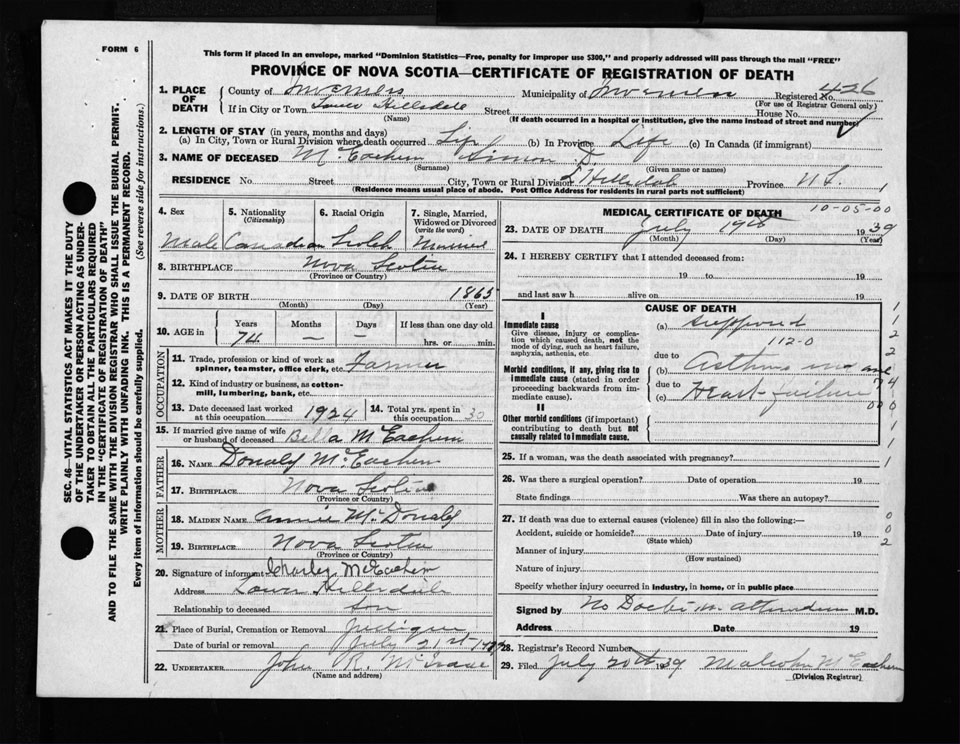 FORM 6
This form if placed in an envelope, marked "Dominion Statistics—Free, penalty for improper use $300," and properly addressed will pass through the mail "FREE"
PROVINCE OF NOVA SCOTIA—CERTIFICATE OF REGISTRATION OF DEATH
1. PLACE OF DEATH
County of Inverness Municipality of Inverness Registered No. 426
(For use of Registrar General only)
If in City or Town Lower Hillsdale Street House No.
(Name) (If death occurred in a hospital or institution, give the name instead of street and number)
2. LENGTH OF STAY (in years, months and days)
(a) In City, Town or Rural Division where death occurred Life (b) In Province Life (c) In Canada (if immigrant)
3. NAME OF DECEASED McEachern Simon D
(Surname) (Given name or names)
RESIDENCE No. Street City, Town or Rural Division L Hillsdale Province N.S. 1
(Residence means usual place of abode. Post Office Address for residents in rural parts not sufficient)
4. Sex
Male
5. Nationality (Citizenship)
Canadian
6. Racial Origin
Scotch
7. Single, Married, Widowed or Divorced (write the word)
Married
8. BIRTHPLACE Nova Scotia
(Province or Country)
9. DATE OF BIRTH 1865
(Month) (Day) (Year)
10. AGE in
Years Months Days If less than one day old
74 — — hrs. or min.
OCCUPATION
11. Trade, profession or kind of work as spinner, teamster, office clerk, etc. Farmer
12. Kind of industry or business, as cotton-mill, lumbering, bank, etc.
13. Date deceased last worked at this occupation 1924
14. Total yrs. spent in this occupation 30
15. If married give name of wife or husband of deceased Bella McEachern
FATHER
16. NAME Donald McEachern
17. BIRTHPLACE Nova Scotia
(Province or Country)
MOTHER
18. MAIDEN NAME Annie McDonald
19. BIRTHPLACE Nova Scotia
(Province or Country)
20. Signature of informant Charley McEachern
Address Lower Hillsdale
Relationship to deceased son
21. Place of Burial, Cremation or Removal
Date of burial or removal July 21st
22. UNDERTAKER John
(Name and address)
MEDICAL CERTIFICATE OF DEATH 10-05-00
23. DATE OF DEATH July 19th 1939
(Month) (Day) (Year)
24. I HEREBY CERTIFY that I attended deceased from:
19 to 19
and last saw h alive on 19
CAUSE OF DEATH
I
Immediate cause
Give disease, injury or complication which caused death, not the mode of dying, such as heart failure, asphyxia, asthenia, etc.
(a) Supposed
112-0
due to
Morbid conditions, if any, giving rise to immediate cause (stated in order proceeding backwards from immediate cause).
(b) Asthma and
due to
(c) Heart failure
II
Other morbid conditions (if important) contributing to death but not causally related to immediate cause.
25. If a woman, was the death associated with pregnancy?
26. Was there a surgical operation? Date of operation 19
State findings Was there an autopsy?
27. If death was due to external causes (violence) fill in also the following:—
Accident, suicide or homicide? Date of injury 19
(State which)
Manner of injury
(How sustained)
Nature of injury
Specify whether injury occurred in industry, in home, or in public place
Signed by No Doctor in attendance M.D.
Address Date 19
28. Registrar's Record Number
29. Filed July 20th 1939 Malcolm McEachern
(Division Registrar)
SEC. 46—VITAL STATISTICS ACT MAKES IT THE DUTY
OF THE UNDERTAKER OR PERSON ACTING AS UNDER-
TAKER TO OBTAIN ALL THE PARTICULARS REQUIRED
IN THE "CERTIFICATE OF REGISTRATION OF DEATH"
AND TO FILE THE SAME WITH THE DIVISION REGISTRAR WHO SHALL ISSUE THE BURIAL PERMIT.
WRITE PLAINLY WITH UNFADING INK. THIS IS A PERMANENT RECORD.
Every item of information should be carefully supplied. (See reverse side for instructions.)